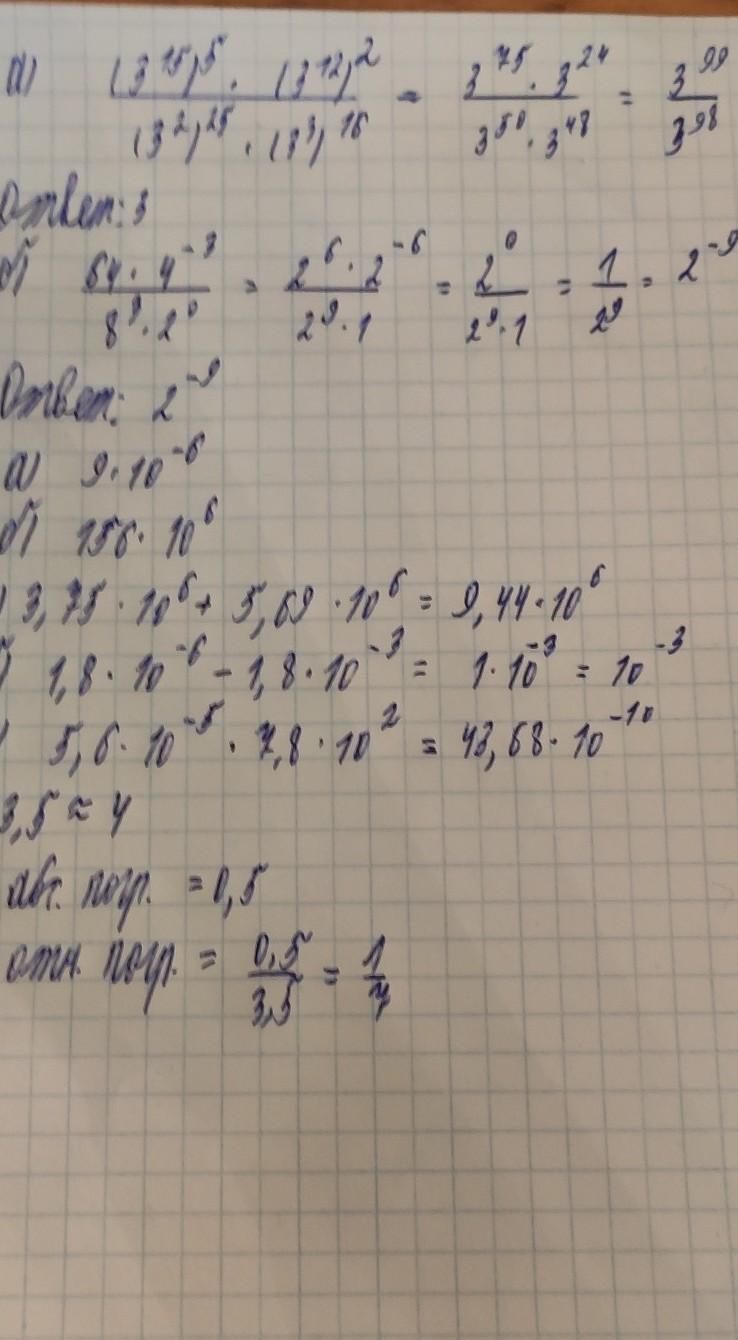 а) (3^15)^5 · (3^12)^2 / (3^2)^25 · (3^3)^16 = 3^75 · 3^24 / 3^50 · 3^48 = 3^99 / 3^98
Ответ: 3
б) 64 · 4^-3 / 8^9 · 2^0 = 2^6 · 2^-6 / 2^9 · 1 = 2^0 / 2^9 · 1 = 1 / 2^9 = 2^-9
Ответ: 2^-9
а) 9 · 10^-6
б) 156 · 10^6
) 3,75 · 10^6 + 5,69 · 10^6 = 9,44 · 10^6
) 1,8 · 10^-6 - 1,8 · 10^-3 = 1 · 10^-3 = 10^-3
) 5,6 · 10^-5 · 7,8 · 10^2 = 43,68 · 10^-10
3,5 ≈ 4
абс. погр. = 0,5
отн. погр. = 0,5 / 3,5 = 1 / 7